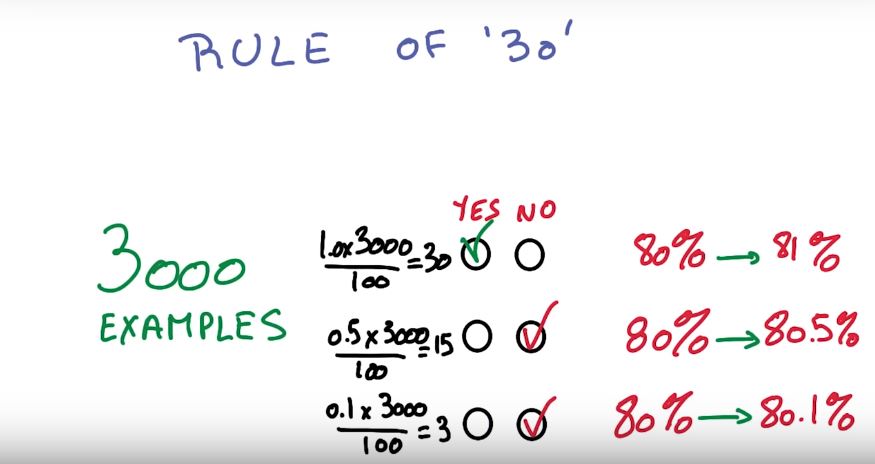 RULE OF '30'
YES NO
3000
EXAMPLES
1.0x3000/100=30
80% → 81%
0.5x3000/100=15
80% → 80.5%
0.1x3000/100=3
80% → 80.1%